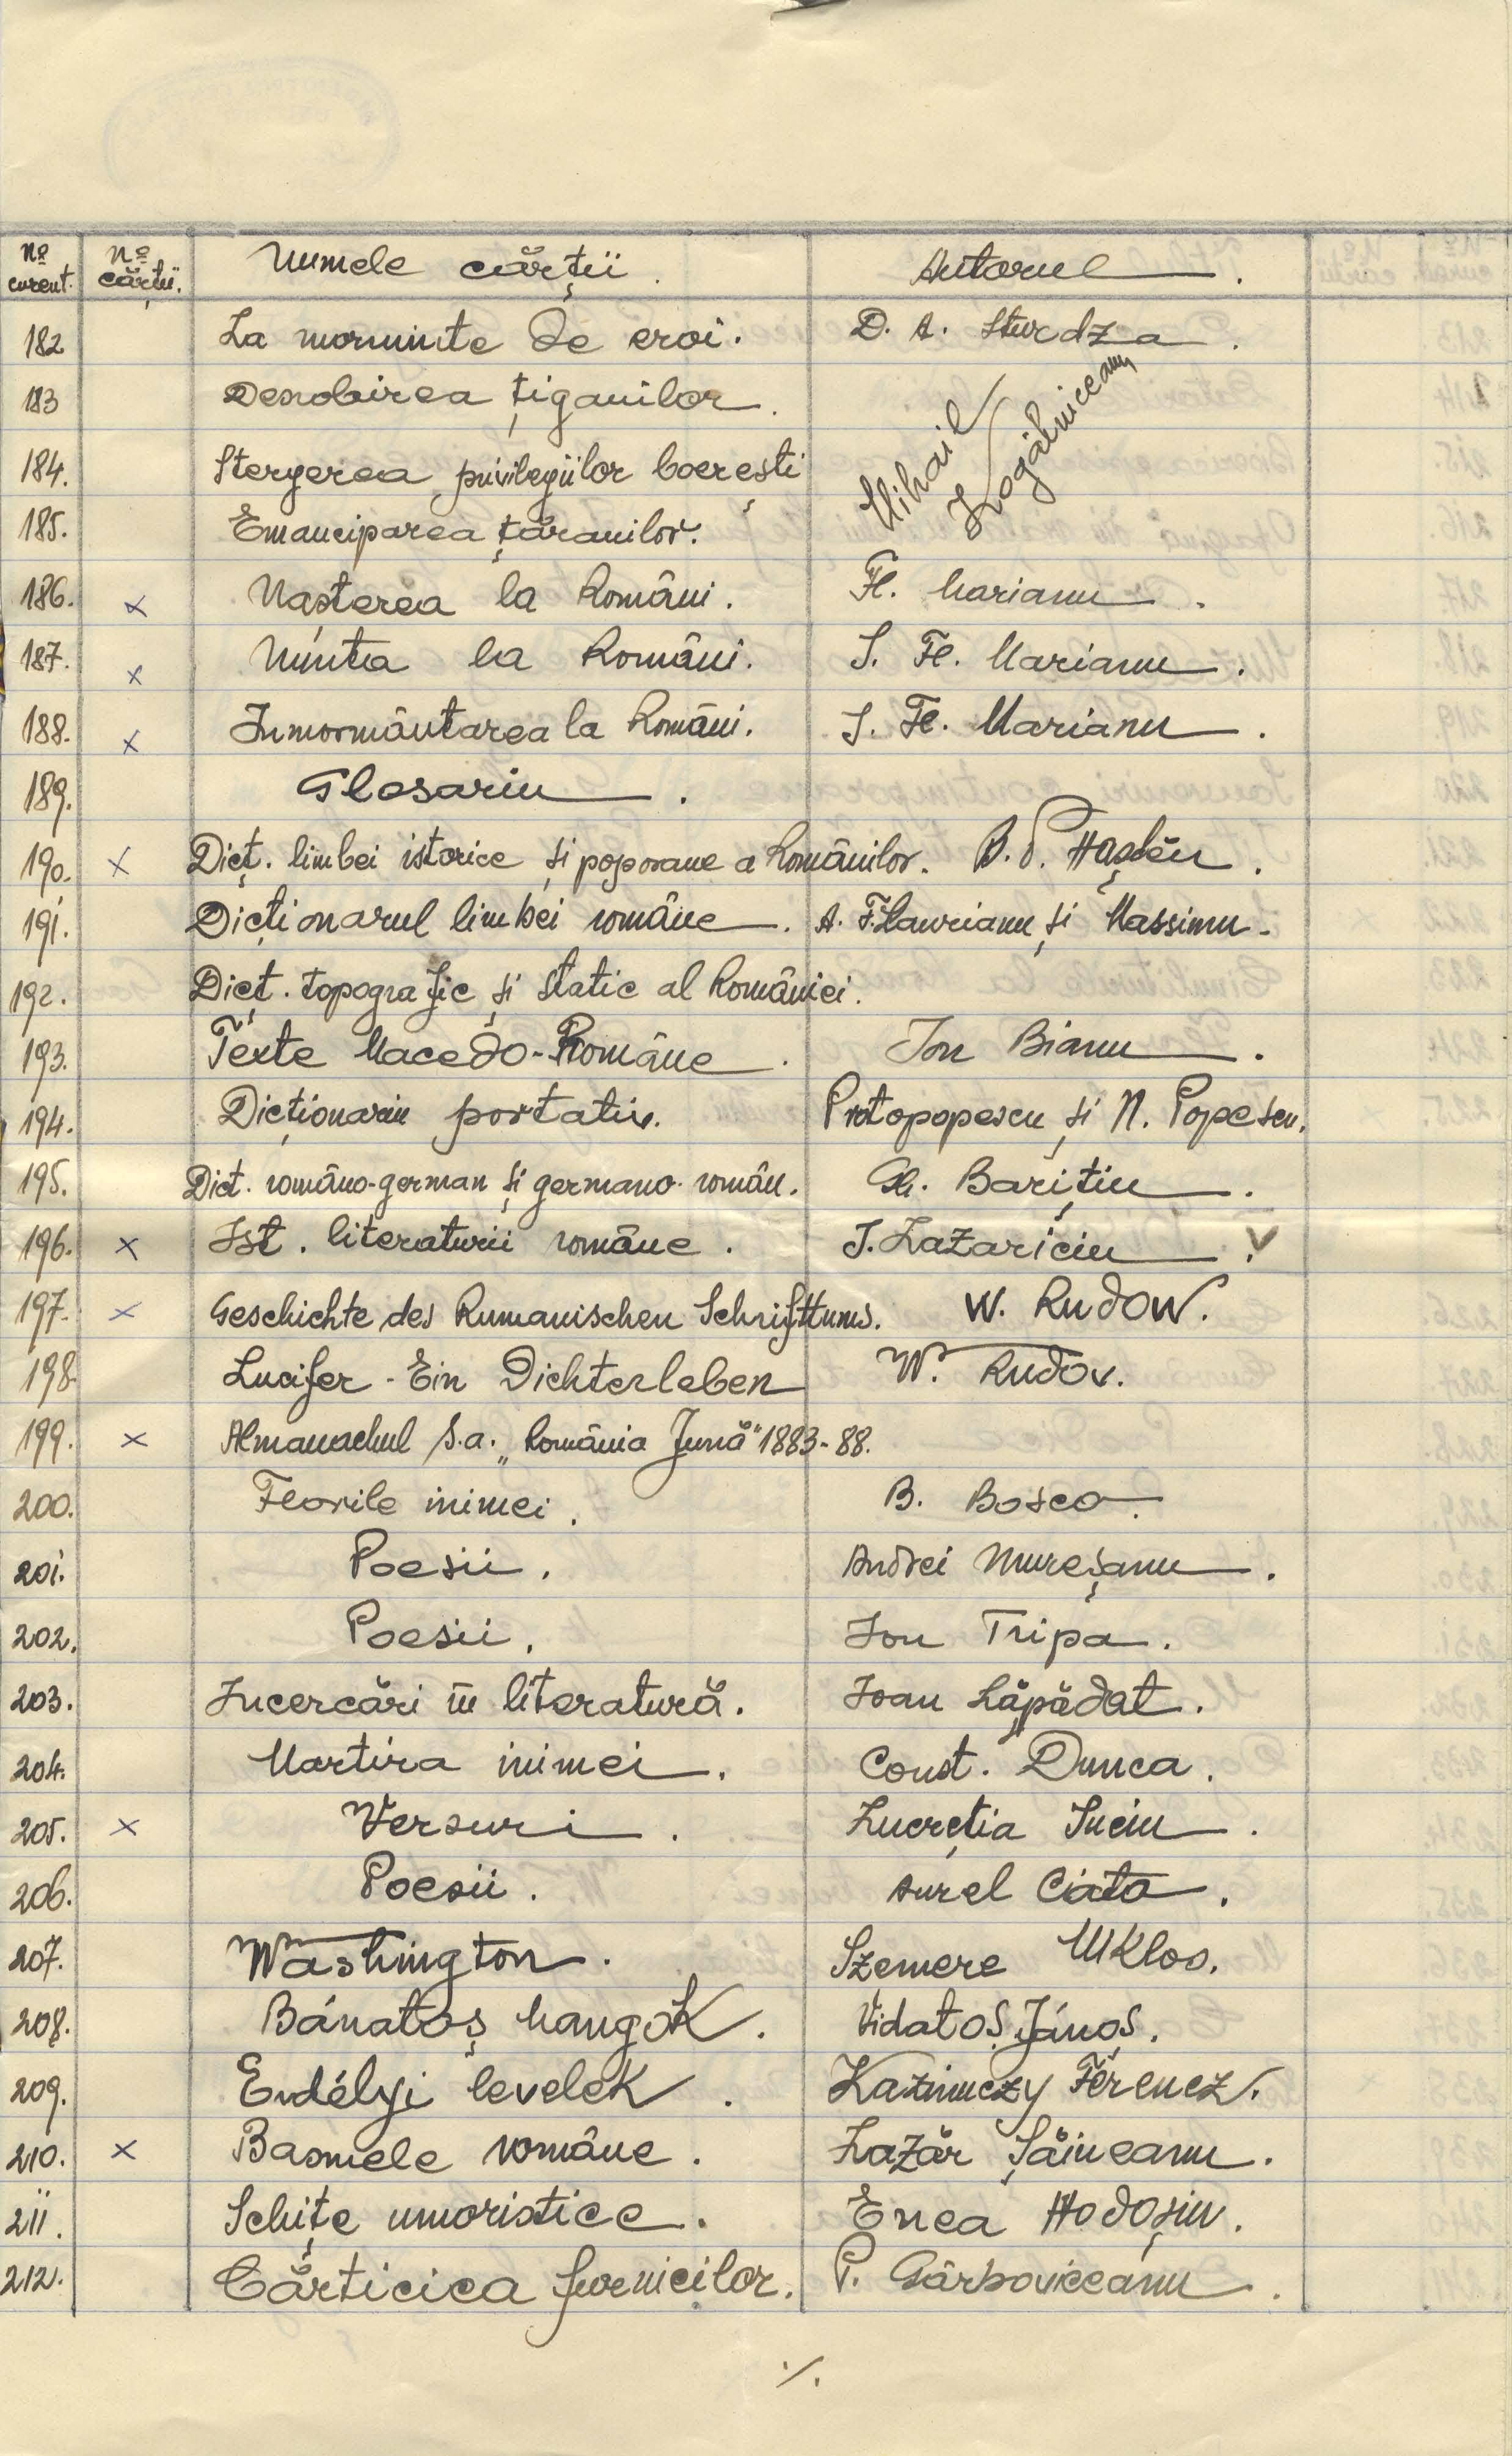 No curent. No cărții. Numele cărții. Autorul.
182 La morminte de eroi. D. A. Sturdza.
183 Desrobirea țiganilor. Mihail Kogălniceanu
184. Stergerea privilegiilor boerești
185. Emanciparea țăranilor.
186. x Nașterea la Români. Fl. Marianu.
187. x Nunta la Români. S. Fl. Marianu.
188. x Inmormântarea la Români. S. Fl. Marianu.
189. Glosariu.
190. x Dicț. limbei istorice și poporane a Românilor. B. P. Hașdeu.
191. Dicționarul limbei române. A. T. Laurianu și Massimu.
192. Dicț. topografic și static al României.
193. Texte Macedo-Române. Ion Bianu.
194. Dicționariu portativ. Protopopescu și N. Popescu.
195. Dict. româno-german și germano-român. G. Barițiu.
196. x Ist. literaturii române. I. Lazariciu. V
197. x Geschichte des Rumanischen Schrifttums. W. Rudow.
198. Lucifer - Ein Dichterleben W. Rudov.
199. x Almanachul S.a. „România Jună" 1883-88.
200. Florile inimei. B. Bosco.
201. Poesii. Andrei Mureșanu.
202. Poesii. Ion Tripa.
203. Incercări in literatură. Ioan Lăpădat.
204. Martira inimei. Const. Dunca.
205. x Versuri. Lucreția Suciu.
206. Poesii. Aurel Ciato.
207. Washington. Szemere Miklos.
208. Bánatoș hangok. Vidatoș Jánoș.
209. Erdélyi levelek. Kazinczy Ferencz.
210. x Basmele române. Lazăr Șăineanu.
211. Schițe umoristice. Enea Hodoșiu.
212. Cărticica furnicilor. P. Gârboviceanu.
./.